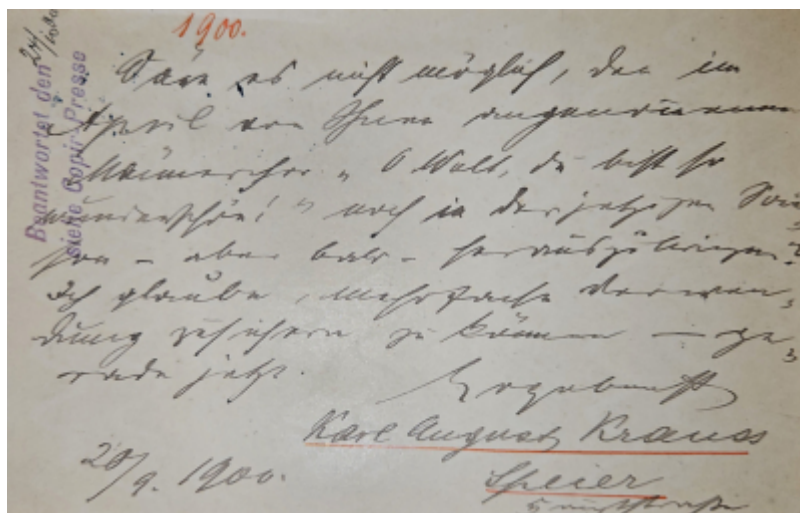 1900.
Beantwortet den
siehe Copir-Presse
Wäre es nicht möglich, den im
April von Ihnen angenommenen
Männerchor „O Welt, du bist so
wunderschön!" noch in der jetzigen Sai¬
son – aber bald – herauszubringen?
Ich glaube, mehrfache Verwen¬
dung zusichern zu können – ge¬
rade jetzt.
Ergebenst
Karl August Krauss
20/9. 1900.
Speier